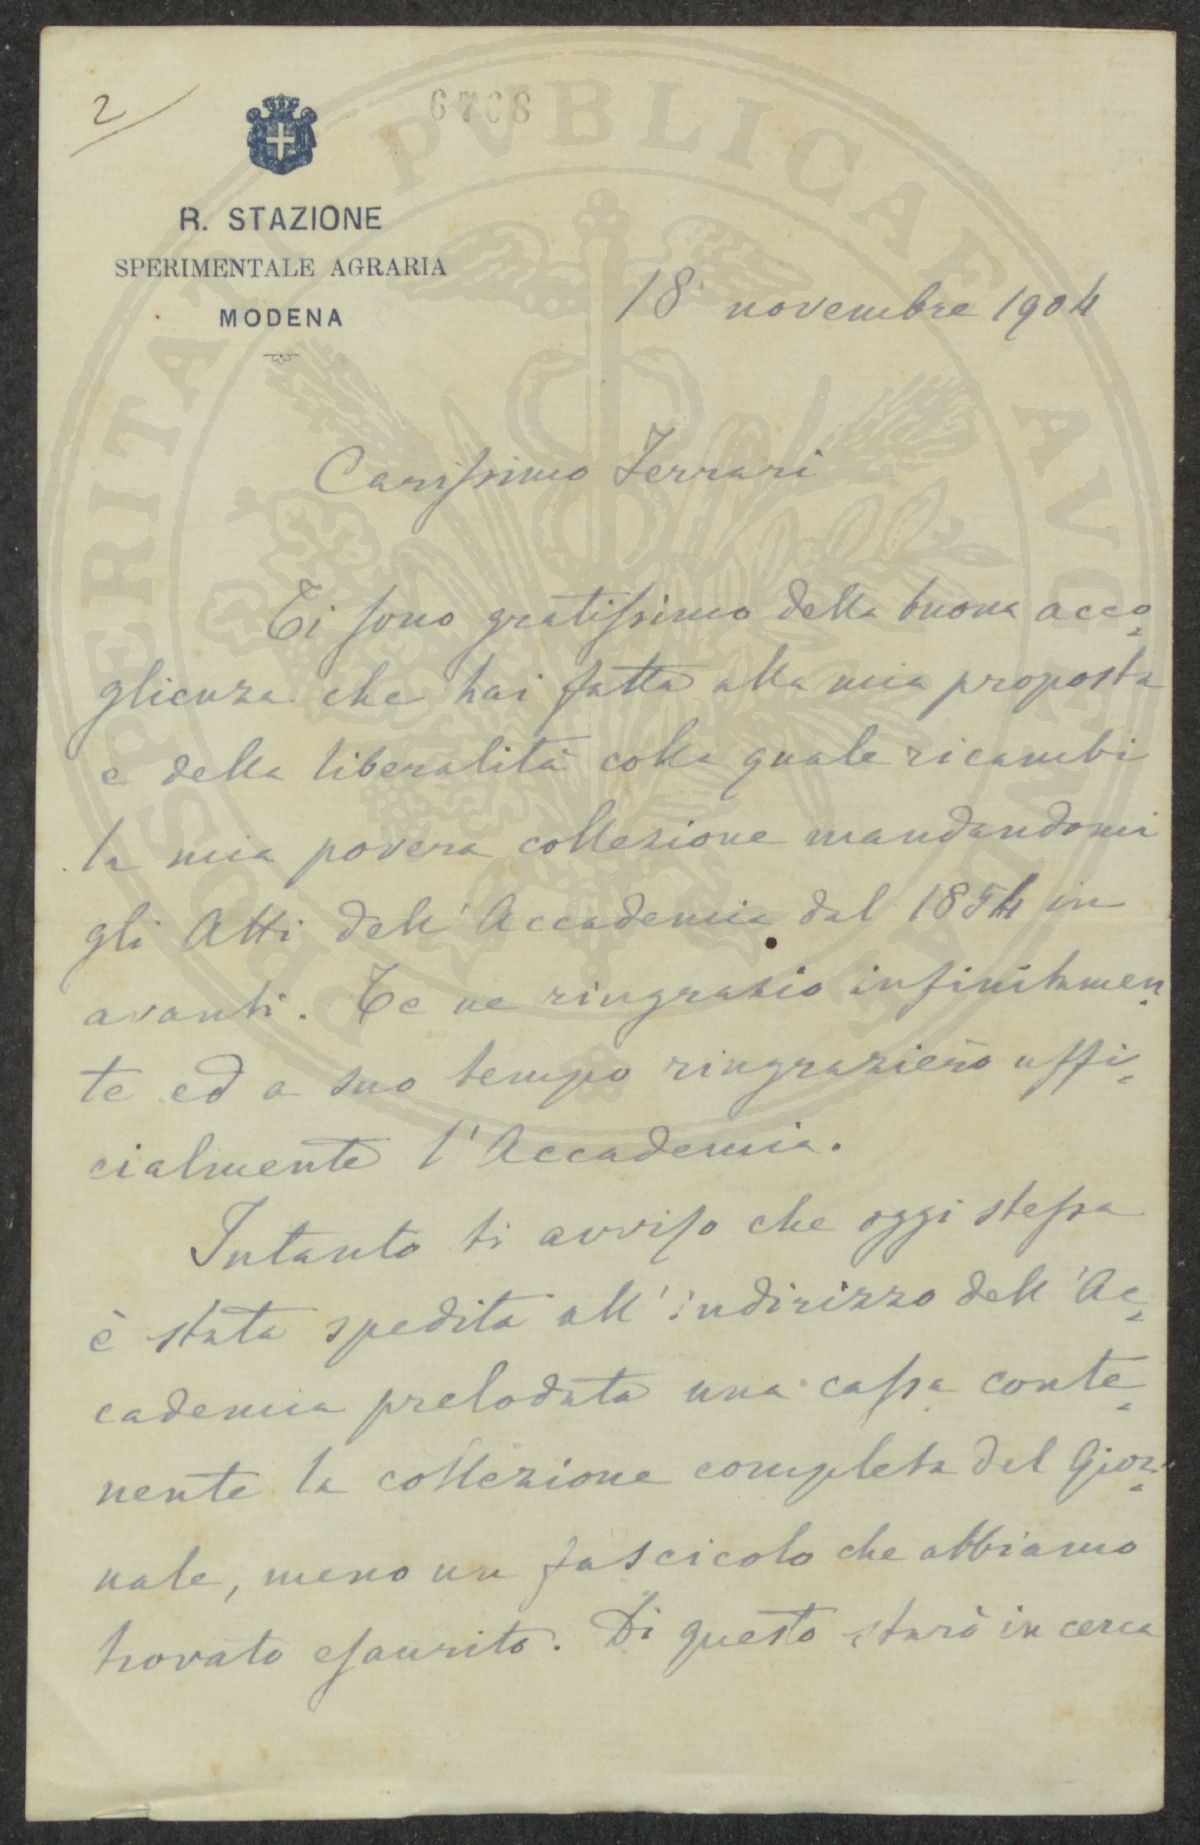 2
6768
R. STAZIONE
SPERIMENTALE AGRARIA
MODENA
18 novembre 1904
Carissimo Ferrari
Ti sono gratissimo della buona acco-
glienza che hai fatta alla mia proposta
e della liberalità colla quale ricambi
la mia povera collezione mandandomi
gli Atti dell'Accademia dal 1854 in
avanti. Te ne ringrazio infinitamen-
te ed a suo tempo ringrazierò uffi-
cialmente l'Accademia.
Intanto ti avviso che oggi stessa
è stata spedita all'indirizzo dell'Ac-
cademia prelodata una cassa conte-
nente la collezione completa del Gior-
nale, meno un fascicolo che abbiamo
trovato esaurito. Di questo starò in cerca
PROSPERITATI PVBLICAE AVGENDAE